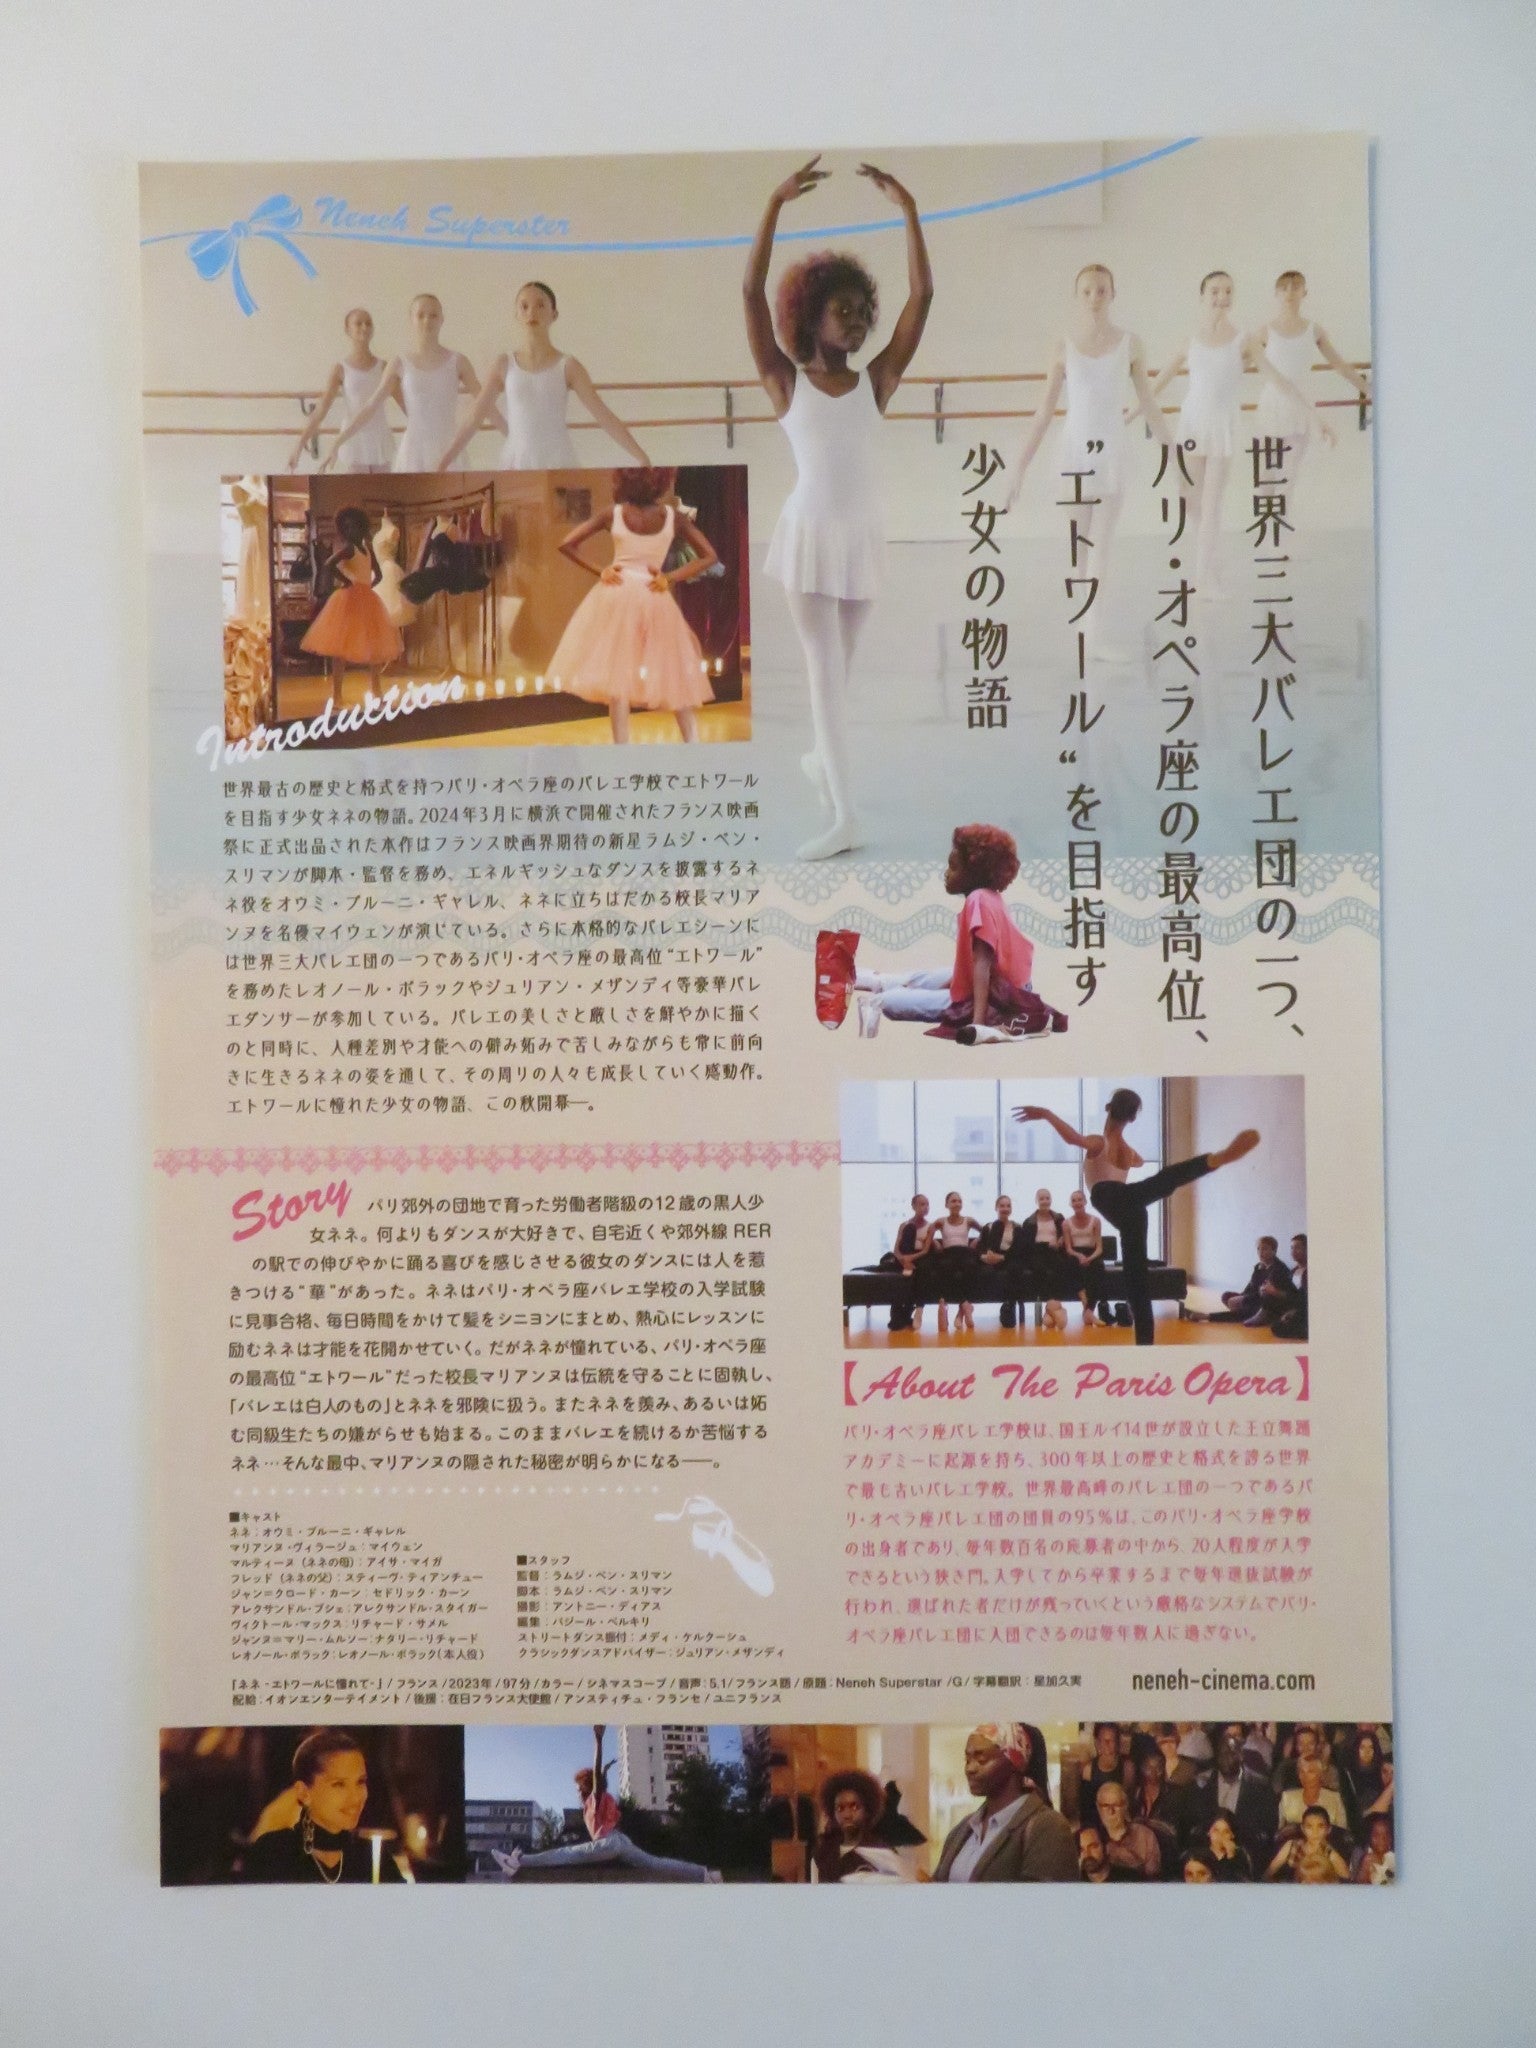 Neneh Superster
世界三大バレエ団の一つ、
パリ・オペラ座の最高位、
”エトワール“を目指す
少女の物語
Introduction
世界最古の歴史と格式を持つパリ・オペラ座のバレエ学校でエトワール
を目指す少女ネネの物語。2024年3月に横浜で開催されたフランス映画
祭に正式出品された本作はフランス映画界期待の新星ラムジ・ベン・
スリマンが脚本・監督を務め、エネルギッシュなダンスを披露するネ
ネ役をオウミ・ブルーニ・ギャレル、ネネに立ちはだかる校長マリア
ンヌを名優マイウェンが演じている。さらに本格的なバレエシーンに
は世界三大バレエ団の一つであるパリ・オペラ座の最高位“エトワール”
を務めたレオノール・ボラックやジュリアン・メザンディ等豪華バレ
エダンサーが参加している。バレエの美しさと厳しさを鮮やかに描く
のと同時に、人種差別や才能への僻み妬みで苦しみながらも常に前向
きに生きるネネの姿を通して、その周りの人々も成長していく感動作。
エトワールに憧れた少女の物語、この秋開幕―。
Story
パリ郊外の団地で育った労働者階級の12歳の黒人少
女ネネ。何よりもダンスが大好きで、自宅近くや郊外線RER
の駅での伸びやかに踊る喜びを感じさせる彼女のダンスには人を惹
きつける“華”があった。ネネはパリ・オペラ座バレエ学校の入学試験
に見事合格、毎日時間をかけて髪をシニヨンにまとめ、熱心にレッスンに
励むネネは才能を花開かせていく。だがネネが憧れている、パリ・オペラ座
の最高位“エトワール”だった校長マリアンヌは伝統を守ることに固執し、
「バレエは白人のもの」とネネを邪険に扱う。またネネを羨み、あるいは妬
む同級生たちの嫌がらせも始まる。このままバレエを続けるか苦悩する
ネネ…そんな最中、マリアンヌの隠された秘密が明らかになる――。
【About The Paris Opera】
パリ・オペラ座バレエ学校は、国王ルイ14世が設立した王立舞踊
アカデミーに起源を持ち、300年以上の歴史と格式を誇る世界
で最も古いバレエ学校。世界最高峰のバレエ団の一つであるパ
リ・オペラ座バレエ団の団員の95%は、このパリ・オペラ座学校
の出身者であり、毎年数百名の応募者の中から、20人程度が入学
できるという狭き門。入学してから卒業するまで毎年選抜試験が
行われ、選ばれた者だけが残っていくという厳格なシステムでパリ・
オペラ座バレエ団に入団できるのは毎年数人に過ぎない。
■キャスト
ネネ：オウミ・ブルーニ・ギャレル
マリアンヌ・ヴィラージュ：マイウェン
マルティーヌ（ネネの母）：アイサ・マイガ
フレッド（ネネの父）：スティーヴ・ティアンチュー
ジャン＝クロード・カーン：セドリック・カーン
アレクサンドル・ブシェ：アレクサンドル・スタイガー
ヴィクトール・マックス：リチャード・サメル
ジャンヌ＝マリー・ムルソー：ナタリー・リチャード
レオノール・ボラック：レオノール・ボラック（本人役）
■スタッフ
監督：ラムジ・ベン・スリマン
脚本：ラムジ・ベン・スリマン
撮影：アントニー・ディアス
編集：バジール・ベルキリ
ストリートダンス振付：メディ・ケルクーシュ
クラシックダンスアドバイザー：ジュリアン・メザンディ
「ネネ -エトワールに憧れて-」/フランス/2023年/97分/カラー/シネマスコープ/音声：5.1/フランス語/原題：Neneh Superstar /G/字幕翻訳：星加久実
配給：イオンエンターテイメント/後援：在日フランス大使館/アンスティチュ・フランセ/ユニフランス
neneh-cinema.com